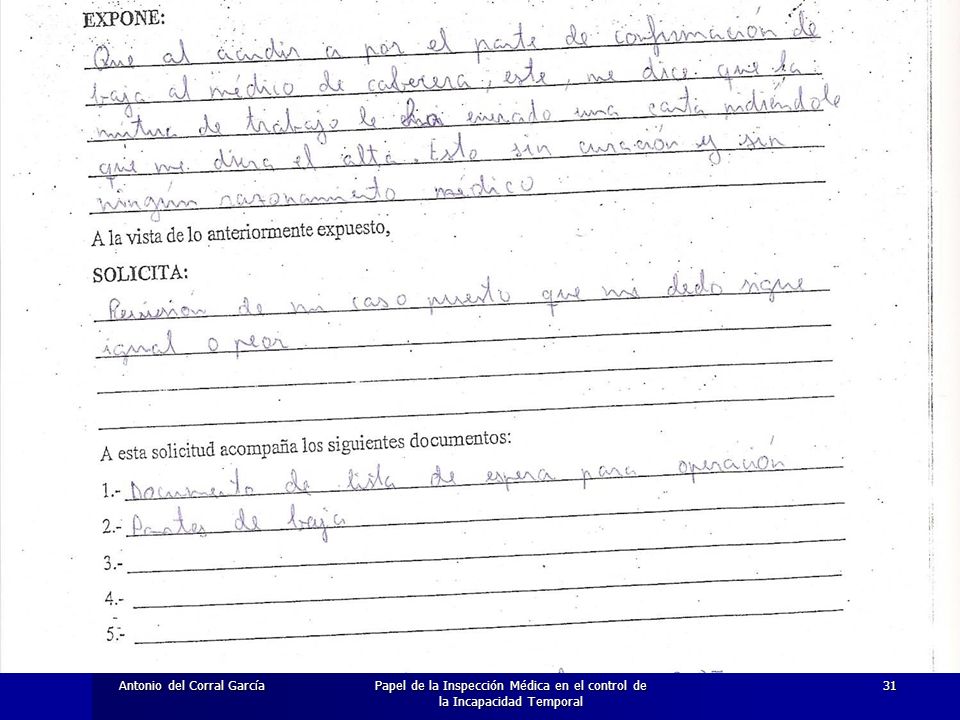 EXPONE:
Que al acudir a por el parte de confirmación de
baja al médico de cabecera, este, me dice que la
mutua de trabajo le ha enviado una carta pidiéndole
que me diera el alta. Esto sin curación y sin
ningún razonamiento médico
A la vista de lo anteriormente expuesto,
SOLICITA:
Revisión de mi caso puesto que mi dedo sigue
igual o peor
A esta solicitud acompaña los siguientes documentos:
1.- Documento de lista de espera para operación
2.- Partes de baja
3.-
4.-
5.-
Antonio del Corral García
Papel de la Inspección Médica en el control de
la Incapacidad Temporal
31